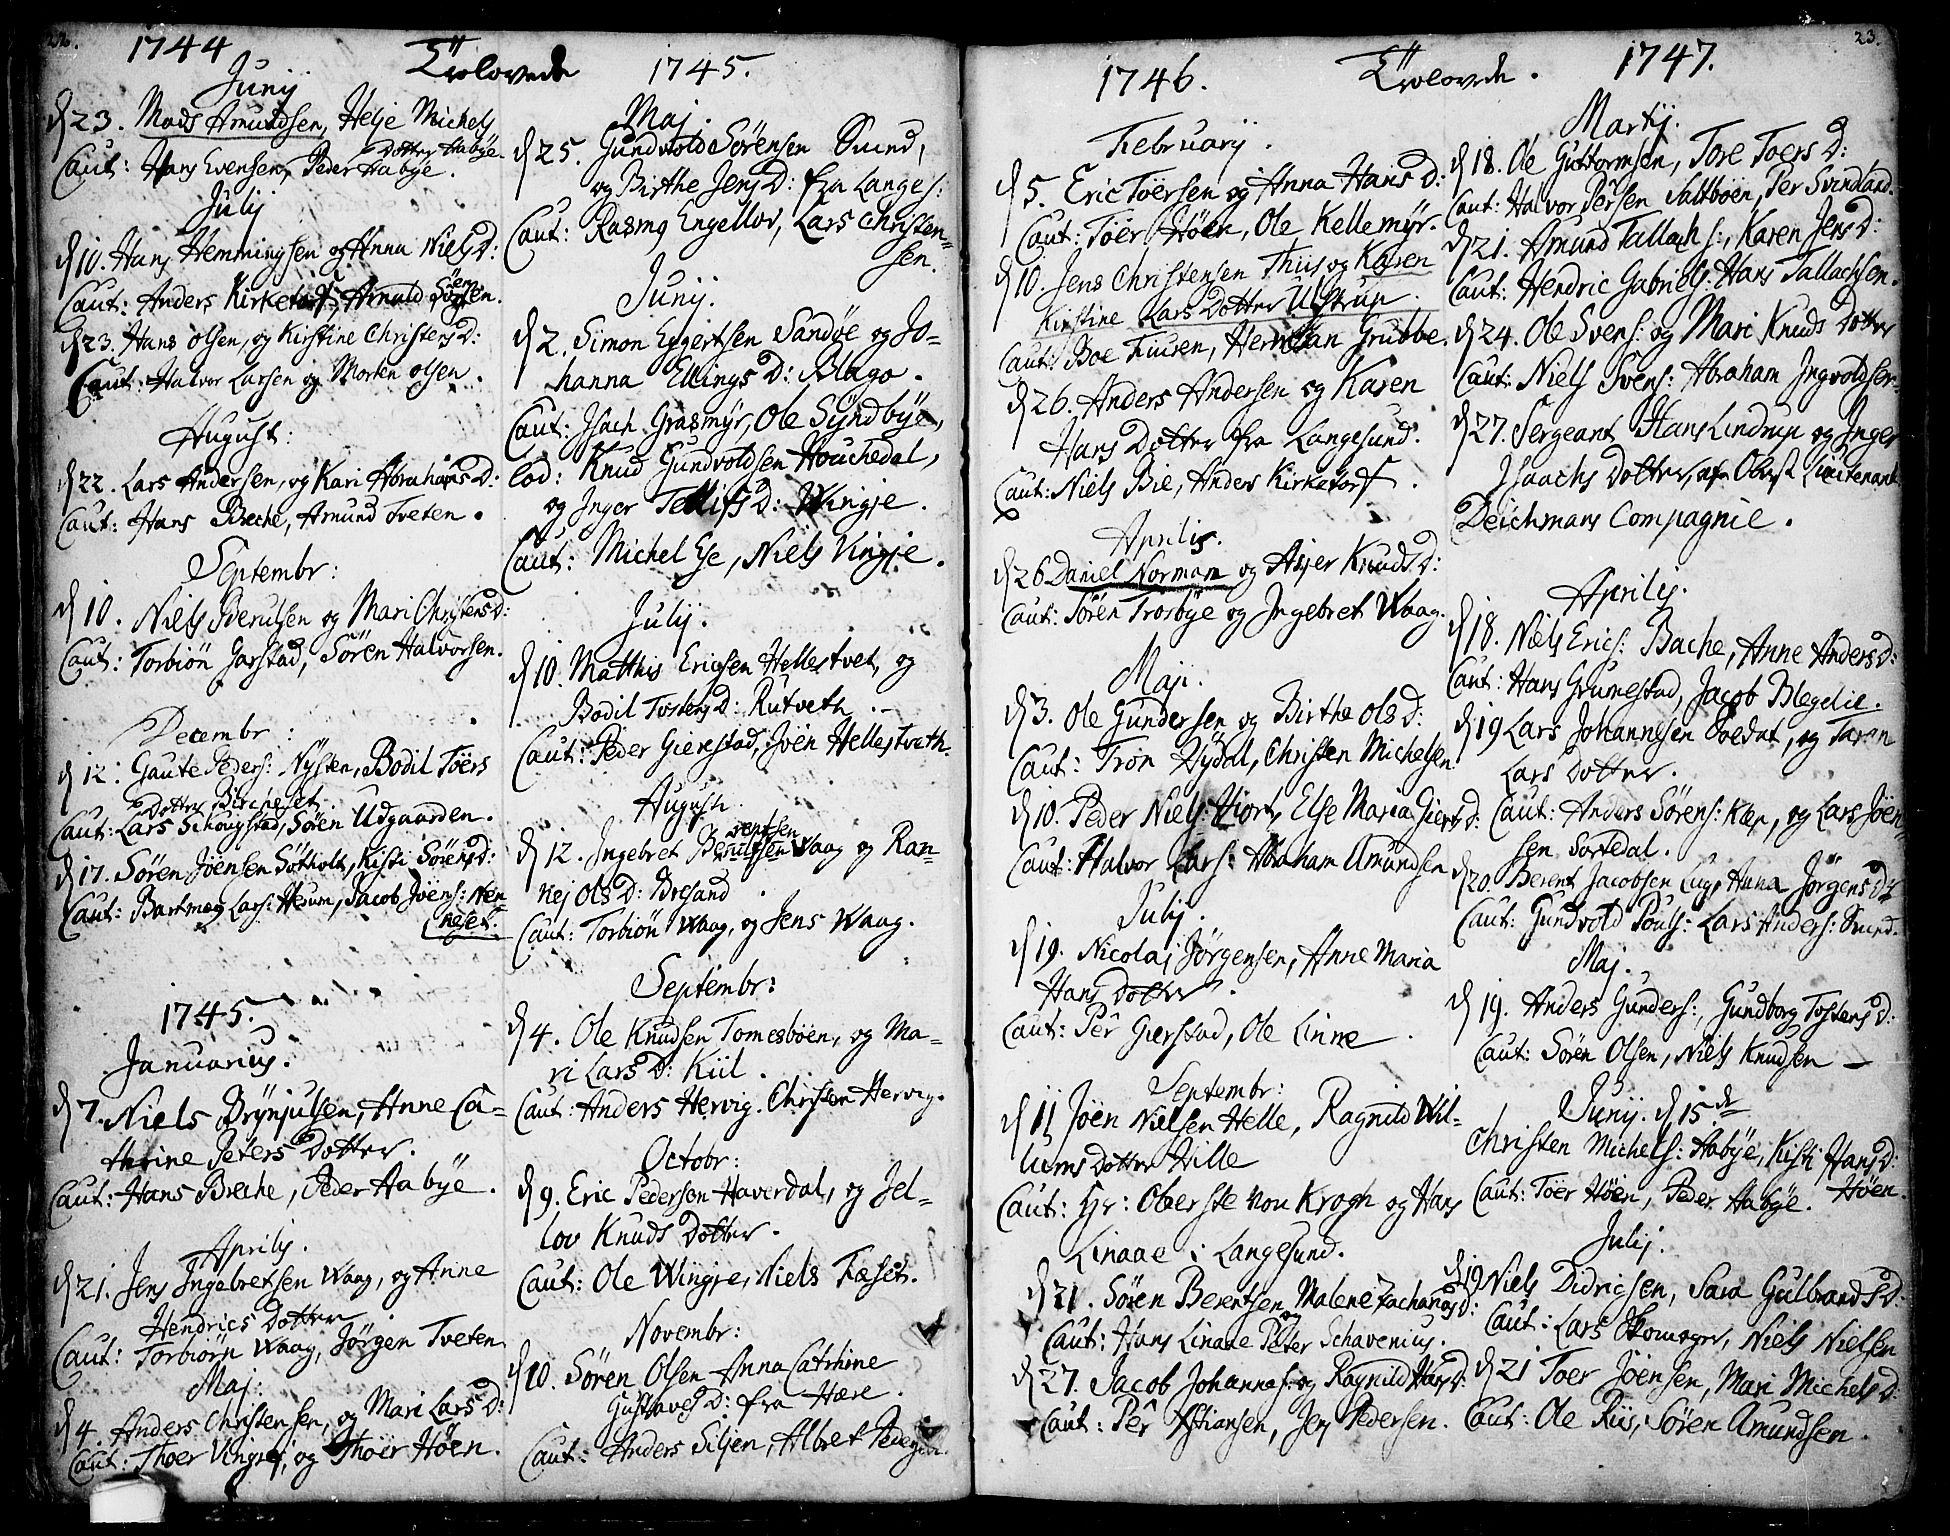 22.
1744
Trolovede
Junij
d 23. Mads Amundsen, Helje Michels
Dotter Habÿe.
Caut: Hans Evensen, Peder Habÿe.
Julij
d 10. Hans Hemmingsen og Anna Niels D:
Caut: Anders Kirketorf, Arnuld
d 23. Hans Olsen, og Kirstine Christens D:
Caut: Halvor Larsen og Morten Olsen.
August:
d 22. Lars Andersen, og Kari Abrahams D:
Caut: Hans Beche, Amund Tveten.
Septembr:
d 10. Niels Berulsen og Mari Christens D:
Caut: Torbiön Garstad, Sören Halvorsen.
Decembr:
d 12. Gaute Peders: Nÿsten, Bodil Töers
Dotter Bircheset.
Caut: Lars Schougstad, Sören Udgaarden.
d 17. Sören Jöensen Sötholt, Kisti Sörens D:
Caut: Bartmeg Lars: Heum, Jacob Jöens: Nen-
neset.
1745.
Januarius.
d 7. Niels Brÿnjulsen, Anne Ca-
thrine Peters Dotter.
Caut: Hans Beche, Peder Habÿe.
Aprilis.
d 21. Jens Ingebretsen Waag, og Anne
Hendrics Dotter
Caut: Torbiörn Waag, Jörgen Tveten
Maj:
d 4. Anders Christensen, og Mari Lars D:
Caut: Thoer Vingrej, og Thoer Höen.
1745.
Maj.
d 25. Gundvold Sörensen Sund,
og Birthe Jens D: fra Langes:
Caut: Rasmg Engellov, Lars Christen-
sen.
Junij.
d 2. Simon Eggertsen Sandöe og Jo-
hanna Ellings D: Blago.
Caut: Jsach Grasmÿr, Ole Sÿndbÿe,
Eod: Knud Gundvoldsen Houchedal,
og Inger Tellifs D: Wingje.
Caut: Michel Ese, Niels Vingje.
Julij.
d 10. Matthis Ericsen Hellestvet, og
Bodil Tostens D: Rutveth.
Caut: Peder Gierstad, Jöen Hellestveth.
August
d 12. Ingebret Berentsen Waag og Ran-
nej Ols D: Bresand.
Caut: Torbiön Waag, og Jens Waag.
Septembr:
d 4. Ole Knudsen Tomesböen, og Ma-
ri Lars D: Kiil.
Caut: Anders Hervig. Christen Hervig.
Octobr:
d 9. Eric Pedersen Haverdal, og Jel-
lov Knuds Dotter.
Caut: Ole Wingje, Niels Fæset.
Novembr:
d 10. Sören Olsen Anna Catrhine
Gustaves D: fra Hære.
Caut: Anders Siljen, Albret
23.
1746.
Trolovede.
Februarij.
d 5. Eric Töersen og Anna Hans D:
Caut: Töer Höen, Ole Kellemÿr.
d 10. Jens Christensen Thiis og Karen
Kirstine Lars Dotter Ulstrup.
Caut: Boe Fiuren, Herman Grubbe.
d 26. Anders Andersen og Karen
Hans Dotter fra Langesund.
Caut: Niels Bie, Anders Kirketorf.
Aprilis.
d 26 Daniel Normann og Asjer Knuds D:
Caut: Sören Trosbÿe og Ingebret Waag.
Maji.
d 3. Ole Gundersen og Birthe Ols D:
Caut: Tron Dÿdal, Christen Michelsen
d 10. Peder Niels: Hiort, Else Maria Gierts D:
Caut: Halvor Lars: Abraham Amundsen
Julij.
d 19. Nicolaj Jörgensen, Anne Maria
Hans Dotter.
Caut: Per Gierstad, Ole Linne.
Septembr:
d 11 Jöen Nielsen Helle, Ragnild Wil-
lums Dotter Hille
Caut: Hr: Oberste von Krogh og Hans
Linaae i Langesund.
d 21. Sören Berentsen, Malene Zacharias D:
Caut: Hans Linaae og Peter Schavenius.
d 27. Jacob Johannes: og Ragnild Hans D:
Caut: Per Xstiansen, Jens Pedersen.
1747.
Martij.
d 18. Ole Guttormsen, Tore Toers D:
Caut: Halvor Persen Saltböen, Per Svindland.
d 21. Amund Tallachs:, Karen Jens D:
Caut: Hendric Gabriels: Hans Tallachsen.
d 24. Ole Svens: og Mari Knuds Dotter
Caut: Niels Svens: Abraham Jngvoldsen
d 27. Sergeant Hans Lindrup og Inger
Isaachs Dotter, af Obrist Lieutenant
Deichmans Compagnie.
Aprilis.
d 18. Niels Erics: Bache, Anne Anders D:
Caut: Hans Grumestad, Jacob Blegelie.
d 19 Lars Johannesen Poedat, og Taran
Lars Dotter.
Caut: Anders Sörens: Kær, og Lars Jöen-
sen Sortedal.
d 20. Berent Jacobsen Lug, Anna Jörgens D:
Caut: Gundvold Pouls: Lars Anders: Sund.
Maj.
d 19. Anders Gunders:, Gundborg Tostens D:
Caut: Sören Olsen, Niels Knudsen —
Junij. d 15de
Christen Michels: Habÿe, Kisti Hans D:
Höen.
Caut: Töer Höen, Peder Habÿe.
Julij.
d 19 Niels Didricsen, Sara Gulbrands D:
Caut: Lars Skomager, Niels Nielsen
d 21 Toer Jöensen, Mari Michels D:
Caut: Ole Riis, Sören Amundsen.